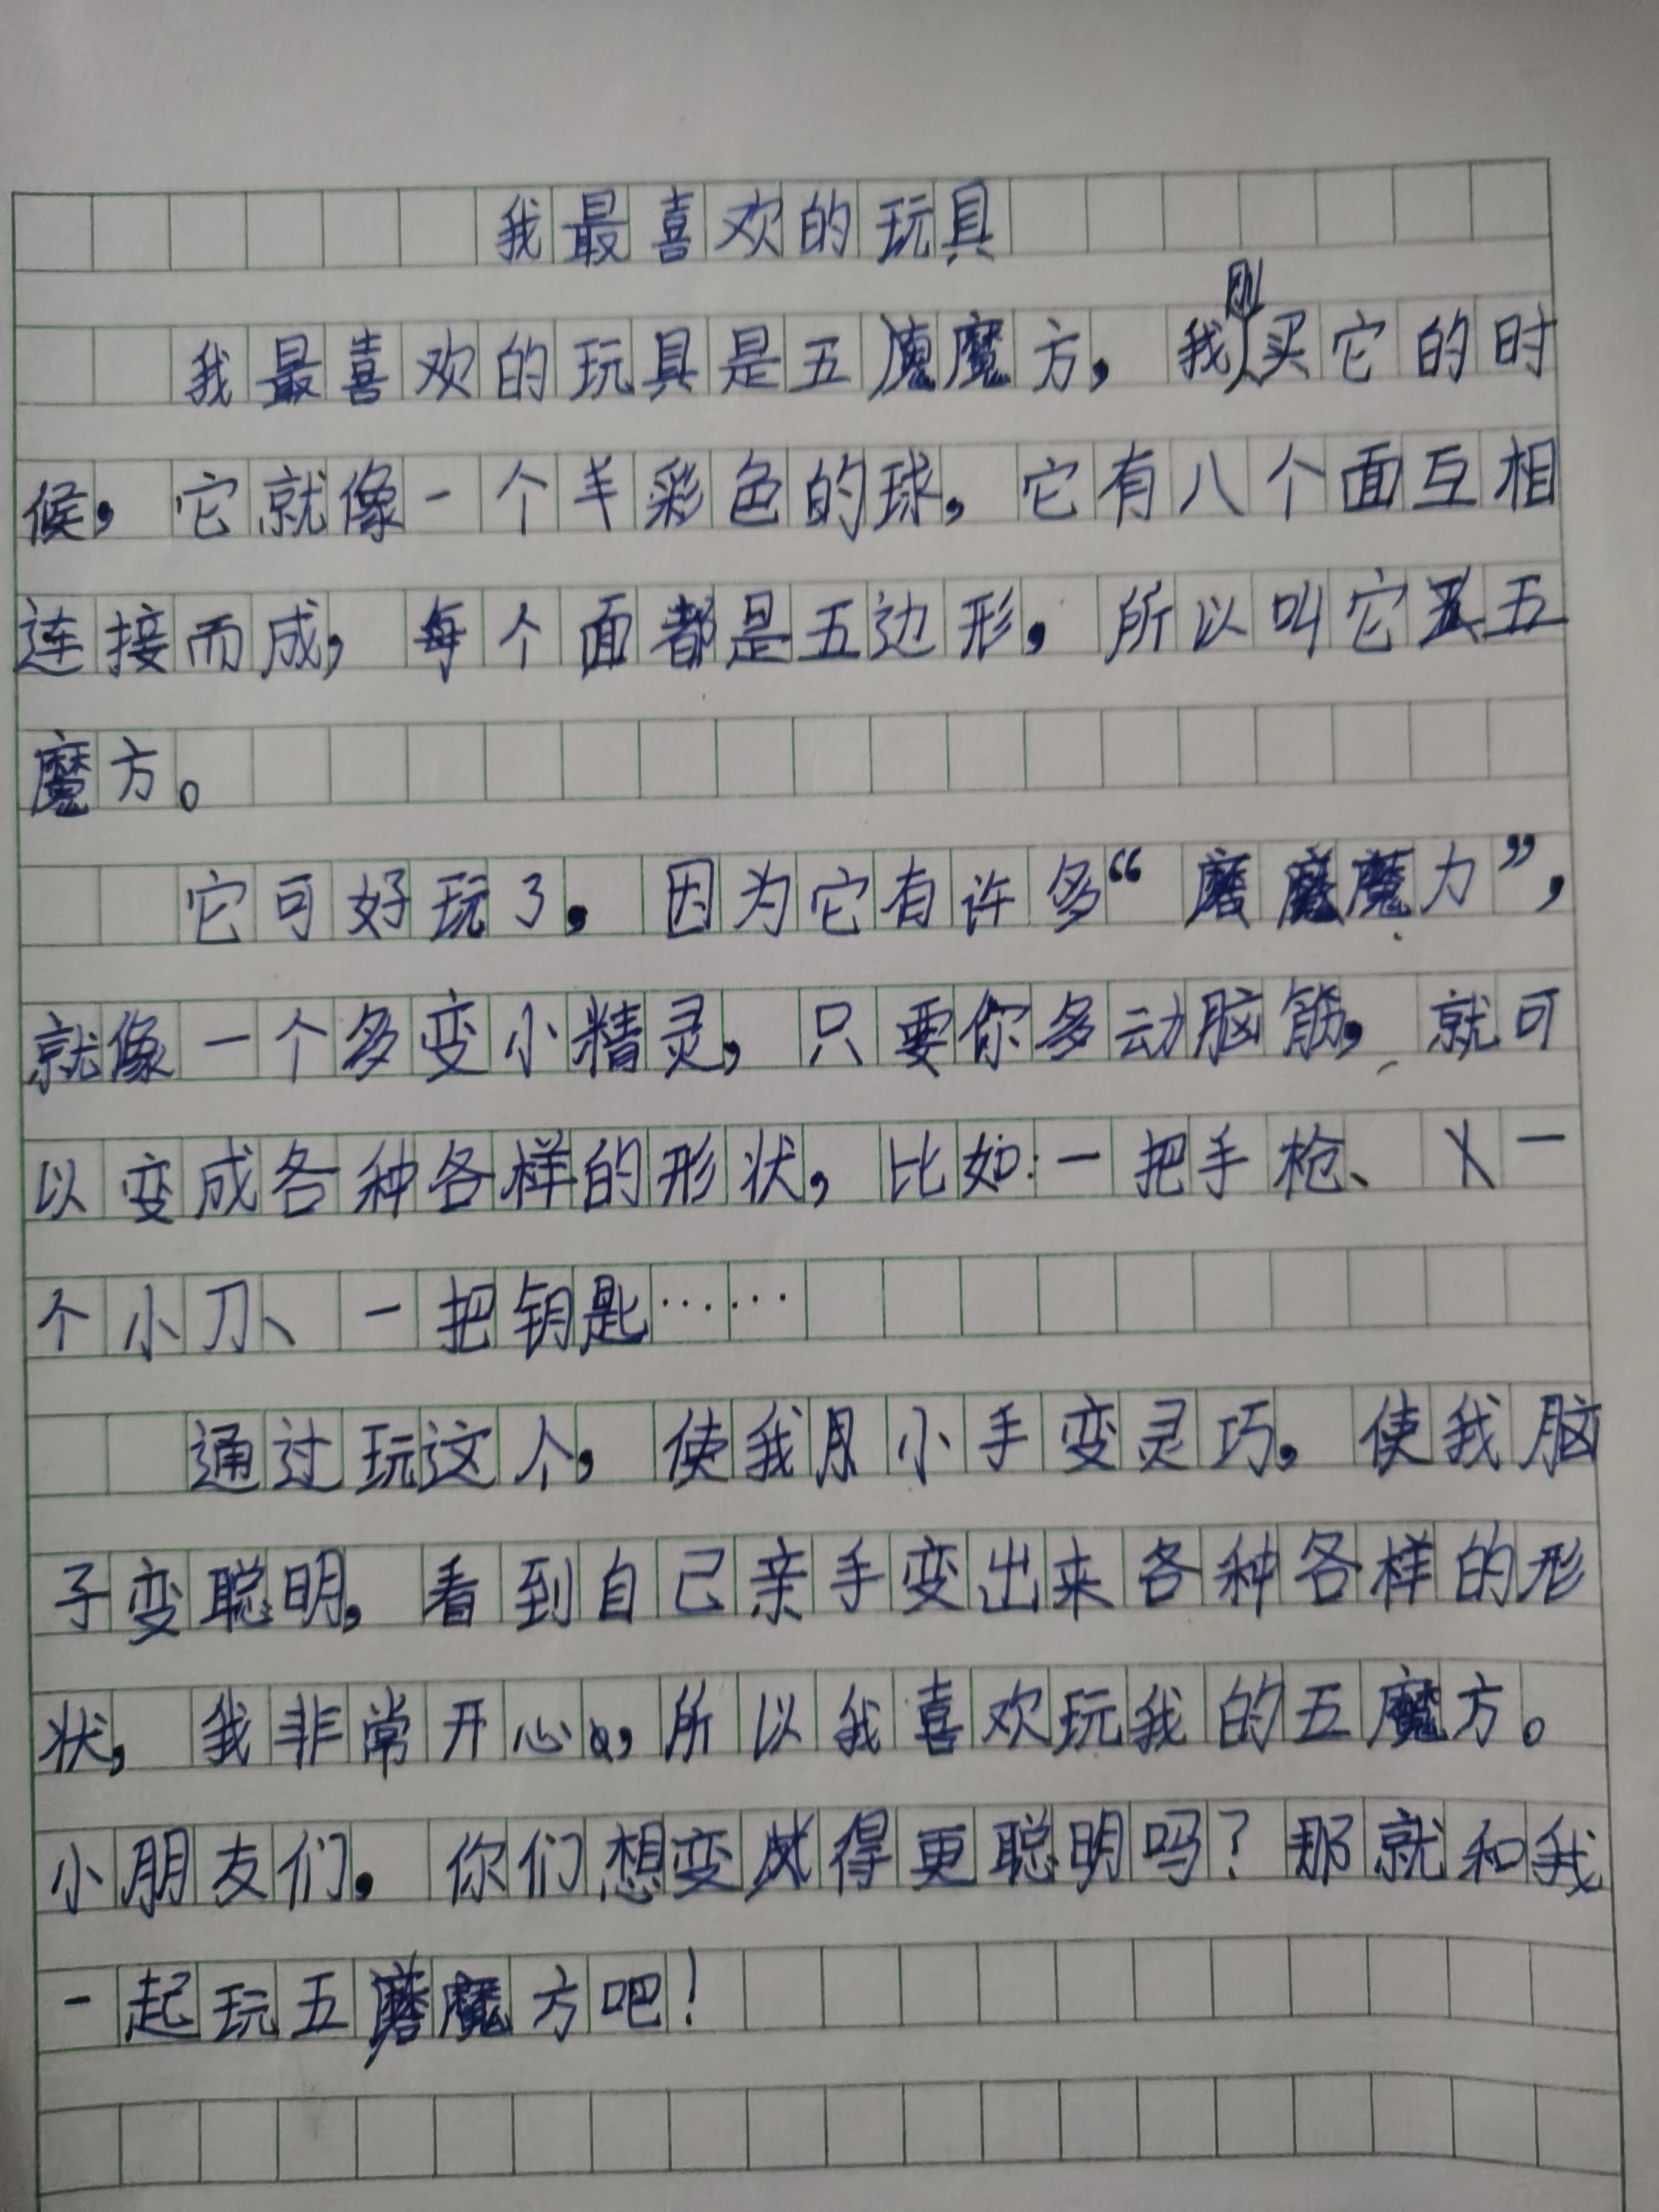 我最喜欢的玩具
我最喜欢的玩具是五魔方，我刚买它的时
候，它就像一个彩色的球，它有八个面互相
连接而成，每个面都是五边形，所以叫它五
魔方。
它可好玩了，因为它有许多“魔力”，
就像一个多变小精灵，只要你多动脑筋，就可
以变成各种各样的形状，比如：一把手枪、一
个小刀、一把钥匙……
通过玩这个，使我小手变灵巧，使我脑
子变聪明，看到自己亲手变出来各种各样的形
状，我非常开心，所以我喜欢玩我的五魔方。
小朋友们，你们想变得更聪明吗？那就和我
一起玩五魔方吧！